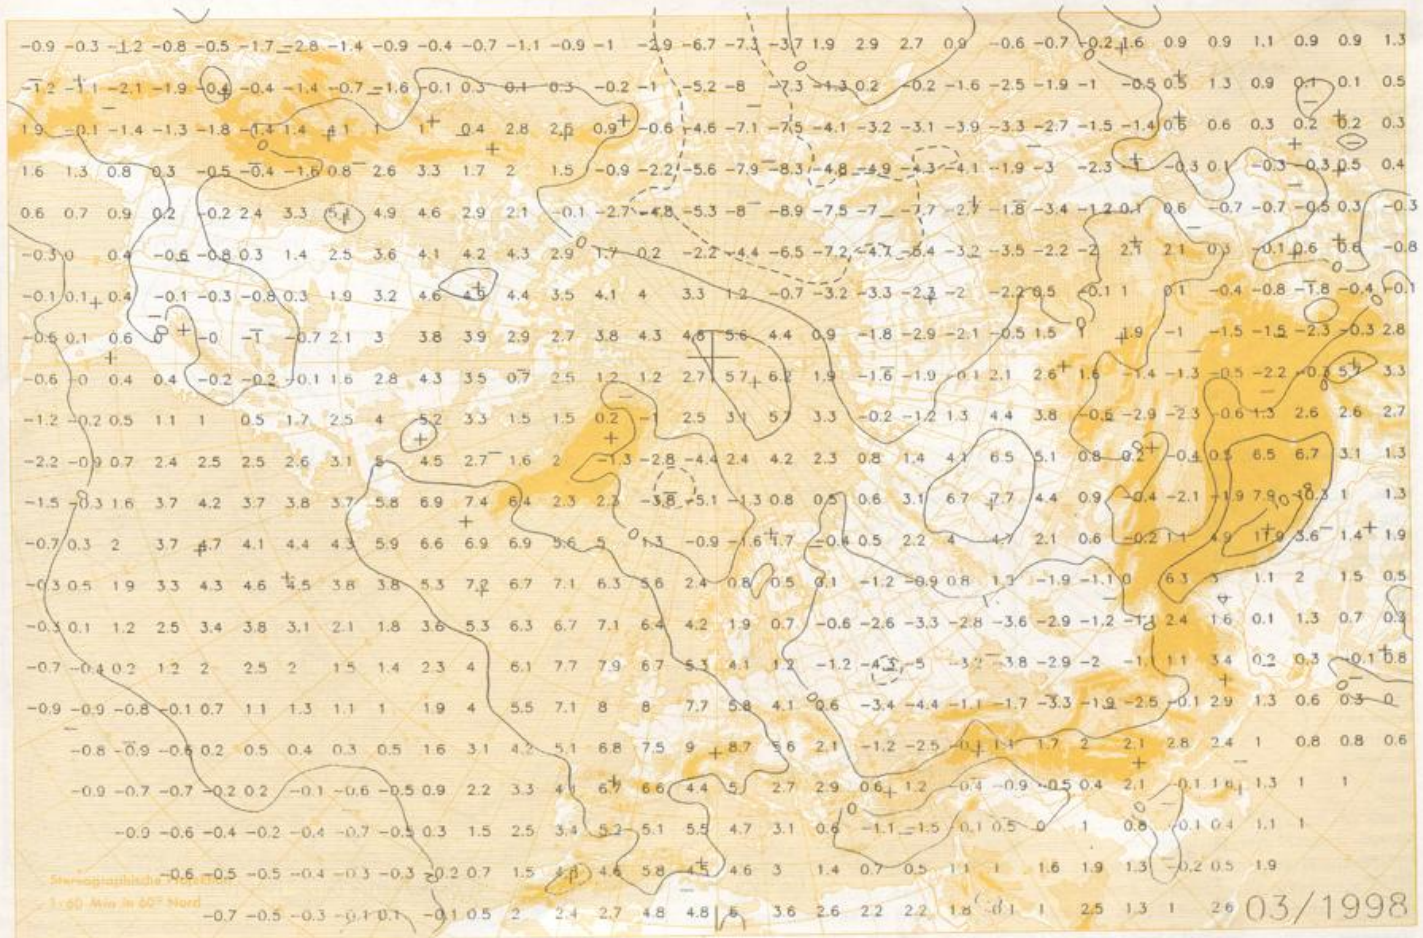 -0.9 -0.3 -1.2 -0.8 -0.5 -1.7 -2.8 -1.4 -0.9 -0.4 -0.7 -1.1 -0.9 -1 -2.9 -6.7 -7.3 -3.7 1.9 2.9 2.7 0.9 -0.6 -0.7 -0.2 1.6 0.9 0.9 1.1 0.9 0.9 1.3
-1.2 -1.1 -2.1 -1.9 -0.4 -0.4 -1.4 -0.7 -1.6 -0.1 0.3 0.1 0.3 -0.2 -1 -5.2 -8 -7.3 -1.3 0.2 -0.2 -1.6 -2.5 -1.9 -1 -0.5 0.5 1.3 0.9 0.1 0.1 0.5
1.9 -0.1 -1.4 -1.3 -1.8 -1.4 1.4 4.1 1 1 0.4 2.8 2.6 0.9 -0.6 -4.6 -7.1 -7.5 -4.1 -3.2 -3.1 -3.9 -3.3 -2.7 -1.5 -1.4 0.6 0.6 0.3 0.2 0.2 0.3
1.6 1.3 0.8 0.3 -0.5 -0.4 -1.6 0.8 2.6 3.3 1.7 2 1.5 -0.9 -2.2 -5.6 -7.9 -8.3 -4.8 -4.9 -4.3 -4.1 -1.9 -3 -2.3 -0.3 0.1 -0.3 -0.3 0.5 0.4
0.6 0.7 0.9 0.2 -0.2 2.4 3.3 4.9 4.6 2.9 2.1 -0.1 -2.7 -4.8 -5.3 -8 -8.9 -7.5 -7 -7.7 -2.7 -1.8 -3.4 -1.2 0.1 0.6 -0.7 -0.7 -0.5 0.3 -0.3
-0.3 0 0.4 -0.6 -0.8 0.3 1.4 2.5 3.6 4.1 4.2 4.3 2.9 1.7 0.2 -2.2 -4.4 -6.5 -7.2 -4.7 -5.4 -3.2 -3.5 -2.2 -2 2.1 2.1 0.3 -0.1 0.6 0.6 -0.8
-0.1 0.1 0.4 -0.1 -0.3 -0.8 0.3 1.9 3.2 4.6 4.9 4.4 3.5 4.1 4 3.3 1.2 -0.7 -3.2 -3.3 -2.3 -2 -2.2 0.5 -0.1 1 0.1 -0.4 -0.8 -1.8 -0.4 -0.1
-0.5 0.1 0.6 0 -0 -1 -0.7 2.1 3 3.8 3.9 2.9 2.7 3.8 4.3 4.8 5.6 4.4 0.9 -1.8 -2.9 -2.1 -0.5 1.5 1 1.9 -1 -1.5 -1.5 -2.3 -0.3 2.8
-0.6 0 0.4 0.4 -0.2 -0.2 -0.1 1.6 2.8 4.3 3.5 0.7 2.5 1.2 1.2 2.7 5.7 6.2 1.9 -1.6 -1.9 -0.1 2.1 2.6 1.6 -1.4 -1.3 -0.5 -2.2 3.3
-1.2 -0.2 0.5 1.1 1 0.5 1.7 2.5 4 5.2 3.3 1.5 1.5 0.2 -1 2.5 3.1 5.7 3.3 -0.2 -1.2 1.3 4.4 3.8 -0.6 -2.9 -2.3 -0.6 1.3 2.6 2.6 2.7
-2.2 -0.9 0.7 2.4 2.5 2.5 2.6 3.1 5 4.5 2.7 1.6 2 -1.3 -2.8 -4.4 2.4 4.2 2.3 0.8 1.4 4.1 6.5 5.1 0.8 0.2 -0.4 0.5 6.5 6.7 3.1 1.3
-1.5 -0.3 1.6 3.7 4.2 3.7 3.8 3.7 5.8 6.9 7.4 6.4 2.3 2.3 -3.8 -5.1 -1.3 0.8 0.5 0.6 3.1 6.7 7.7 4.4 0.9 -0.4 -2.1 -1.9 7.9 10.3 1 1.3
-0.7 0.3 2 3.7 4.7 4.1 4.4 4.3 5.9 6.6 6.9 6.9 5.6 5 1.3 -0.9 -1.6 1.7 -0.4 0.5 2.2 4 4.7 2.1 0.6 -0.2 1.1 4.9 11.9 3.6 1.4 1.9
-0.3 0.5 1.9 3.3 4.3 4.6 4.5 3.8 3.8 5.3 7.2 6.7 7.1 6.3 5.6 2.4 0.8 0.5 0.1 -1.2 -0.9 0.8 1.3 -1.9 -1.1 0 6.3 3 1.1 2 1.5 0.5
-0.3 0.1 1.2 2.5 3.4 3.8 3.1 2.1 1.8 3.6 5.3 6.3 6.7 7.1 6.4 4.2 1.9 0.7 -0.6 -2.6 -3.3 -2.8 -3.6 -2.9 -1.2 -1.1 2.4 1.6 0.1 1.3 0.7 0.3
-0.7 -0.4 0.2 1.2 2 2.5 2 1.5 1.4 2.3 4 6.1 7.7 7.9 6.7 5.3 4.1 1.2 -1.2 -4.3 -5 -3.2 -3.8 -2.9 -2 -1.1 1.1 3.4 0.2 0.3 -0.1 0.8
-0.9 -0.9 -0.8 -0.1 0.7 1.1 1.3 1.1 1 1.9 4 5.5 7.1 8 8 7.7 5.8 4.1 0.6 -3.4 -4.4 -1.1 -1.7 -3.3 -1.9 -2.5 -0.1 2.9 1.3 0.6 0.3 0
-0.8 -0.9 -0.6 0.2 0.5 0.4 0.3 0.5 1.6 3.1 4.2 5.1 6.8 7.5 9 8.7 5.6 2.1 -1.2 -2.5 -0.1 1.1 1.7 2 2.1 2.8 2.4 1 0.8 0.8 0.6
-0.9 -0.7 -0.7 -0.2 0.2 -0.1 -0.6 -0.5 0.9 2.2 3.3 4.1 6.7 6.6 4.4 5 2.7 2.9 0.6 1.2 -0.4 -0.9 -0.5 0.4 2.1 -0.1 1.6 1.3 1 1
-0.9 -0.6 -0.4 -0.2 -0.4 -0.7 -0.5 0.3 1.5 2.5 3.4 5.2 5.1 5.5 4.7 3.1 0.6 -1.1 -1.5 0.1 0.5 0 1 0.8 -0.1 0.4 1.1 1
-0.6 -0.5 -0.5 -0.4 -0.3 -0.3 -0.2 0.7 1.5 4.3 4.6 5.8 4.5 4.6 3 1.4 0.7 0.5 1.1 1 1.6 1.9 1.3 -0.2 0.5 1.9
Stereographische Projektion
1:60 Mio in 60° Nord
-0.7 -0.5 -0.3 -0.1 0.1 -0.1 0.5 2 2.4 2.7 4.8 4.8 5 3.6 2.6 2.2 2.2 1.8 1 2.5 1.3 1 2.6 03/1998